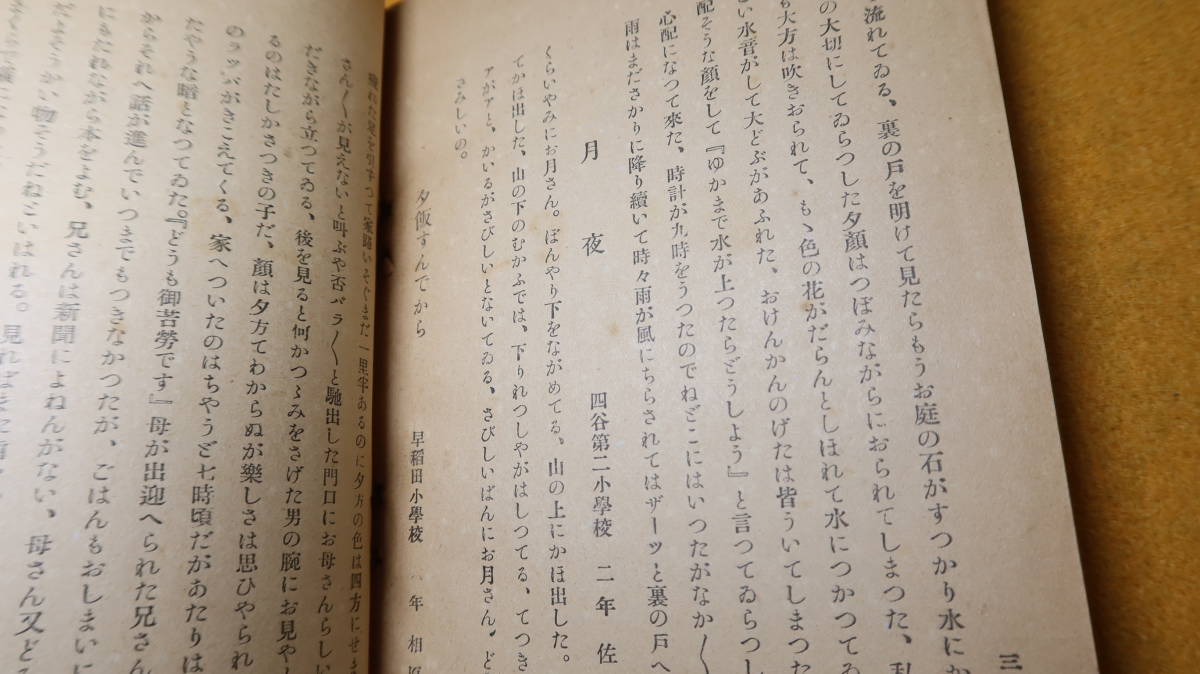 流れてゐる、裏の戸を明けて見たらもうお庭の石がすつかり水にか
の大切にしてゐらつした夕顔はつぼみながらにおられてしまつた、私
も大方は吹きおられて、もゝ色の花がだらんとしほれて水につかつてゐ
い水音がして大どぶがあふれた、おけんかんのげたは皆ういてしまつた
配そうな顔をして『ゆかまで水が上つたらどうしよう』と言つてゐらつし
心配になつて來た、時計が九時をうつたのでねどこにはいつたがなか〳〵
雨はまださかりに降り續いて時々雨が風にちらされてはザーッと裏の戸へ
月夜
四谷第二小學校 二年 佐
くらいやみにお月さん。ぼんやり下をながめてる、山の上にかほ出した。
てかほ出した、山の下のむかふでは、下りれつしやがはしつてる、てつき
アがアと、かいるがさびしいとないてゐる、さびしいばんにお月さん、ど
さみしいの。
夕飯すんでから
早稲田小學校 年 相
を引ずつて家路いそぐまだ一里半あるのに夕方の色は四方にせま
さん〳〵が見えないと叫ぶや否バラ〳〵と馳出した門口にお母さんらしい
だきながら立つてゐる、後を見ると何かつゝみをさげた男の腕にお見や
るのはたしかさつきの子だ、顔は夕方てわからぬが樂しさは思ひやられ
のラッパがきこえてくる、家へついたのはちやうど七時頃だがあたりは
たやうな暗となつてゐた。『どうも御苦勞です』母が出迎へられた兄さん
からそれへ話が進んでいつまでもつきなかつたが、ごはんもおしまいに
にもたれながら本をよむ、兄さんは新聞によねんがない、母さん又どこ
だよそうかい物そうだねといはれる。見ればまた
三